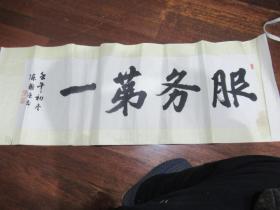 服务第一
壬午初冬